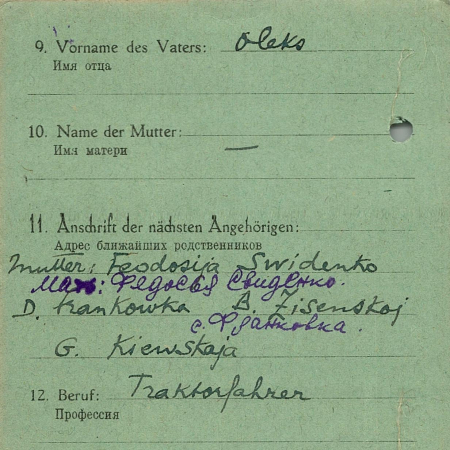 9. Vorname des Vaters: Oleko
Имя отца
10. Name der Mutter: —
Имя матери
11. Anschrift der nächsten Angehörigen:
Адрес ближайших родственников
Mutter: Feodosija Swidenko
Мать: Федосья Свиденко.
D. Frankowka B. Zisenskoj
с. Франковка.
G. Kiewskaja
12. Beruf: Traktorfahrer
Профессия